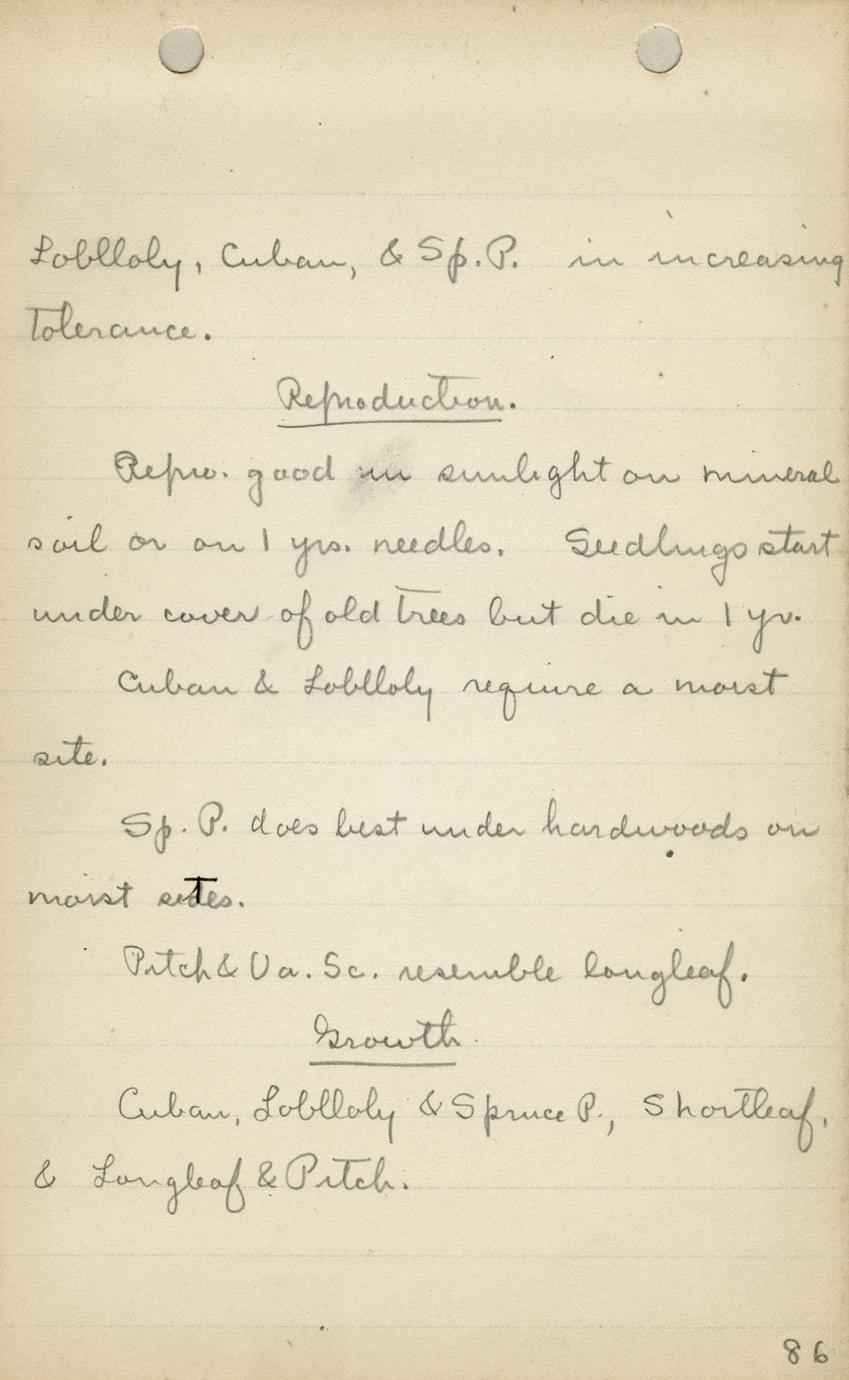 Loblloly, Cuban, & Sp. P. in increasing
tolerance.
Reproduction.
Repro. good in sunlight on mineral
soil or on 1 yrs. needles. Seedlings start
under cover of old trees but die in 1 yr.
Cuban & Loblloly require a moist
site.
Sp. P. does best under hardwoods on
moist sites.
Pitch & Va. Sc. resemble longleaf.
Growth
Cuban, Loblloly & Spruce P., Shortleaf,
& Longleaf & Pitch.
86